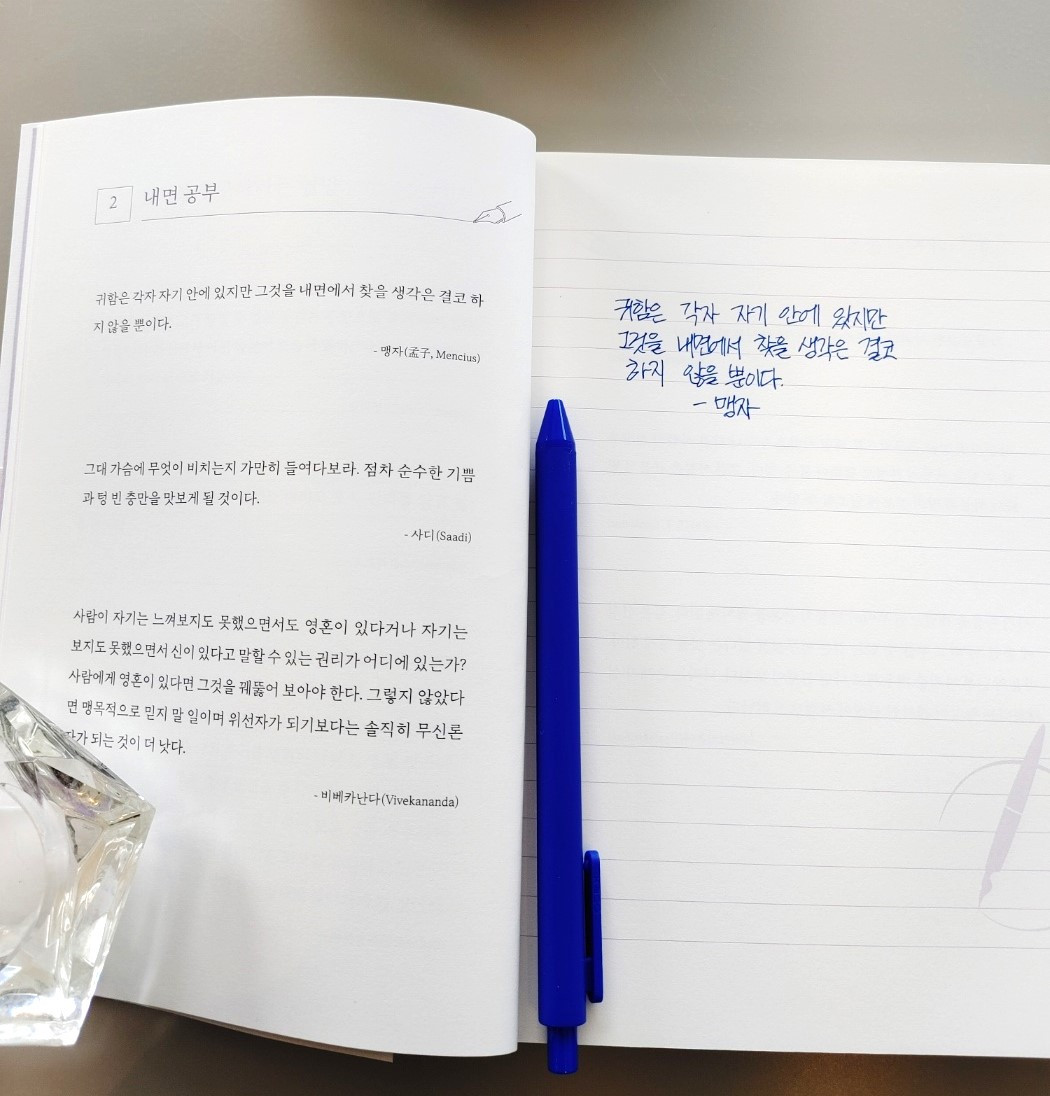 2 내면 공부
귀함은 각자 자기 안에 있지만 그것을 내면에서 찾을 생각은 결코 하
지 않을 뿐이다.
- 맹자(孟子, Mencius)
그대 가슴에 무엇이 비치는지 가만히 들여다보라. 점차 순수한 기쁨
과 텅 빈 충만을 맛보게 될 것이다.
- 사디(Saadi)
사람이 자기는 느껴보지도 못했으면서도 영혼이 있다거나 자기는
보지도 못했으면서 신이 있다고 말할 수 있는 권리가 어디에 있는가?
사람에게 영혼이 있다면 그것을 꿰뚫어 보아야 한다. 그렇지 않았다
면 맹목적으로 믿지 말 일이며 위선자가 되기보다는 솔직히 무신론
자가 되는 것이 더 낫다.
- 비베카난다(Vivekananda)
귀함은 각자 자기 안에 있지만
그것을 내면에서 찾을 생각은 결코
하지 않을 뿐이다.
- 맹자